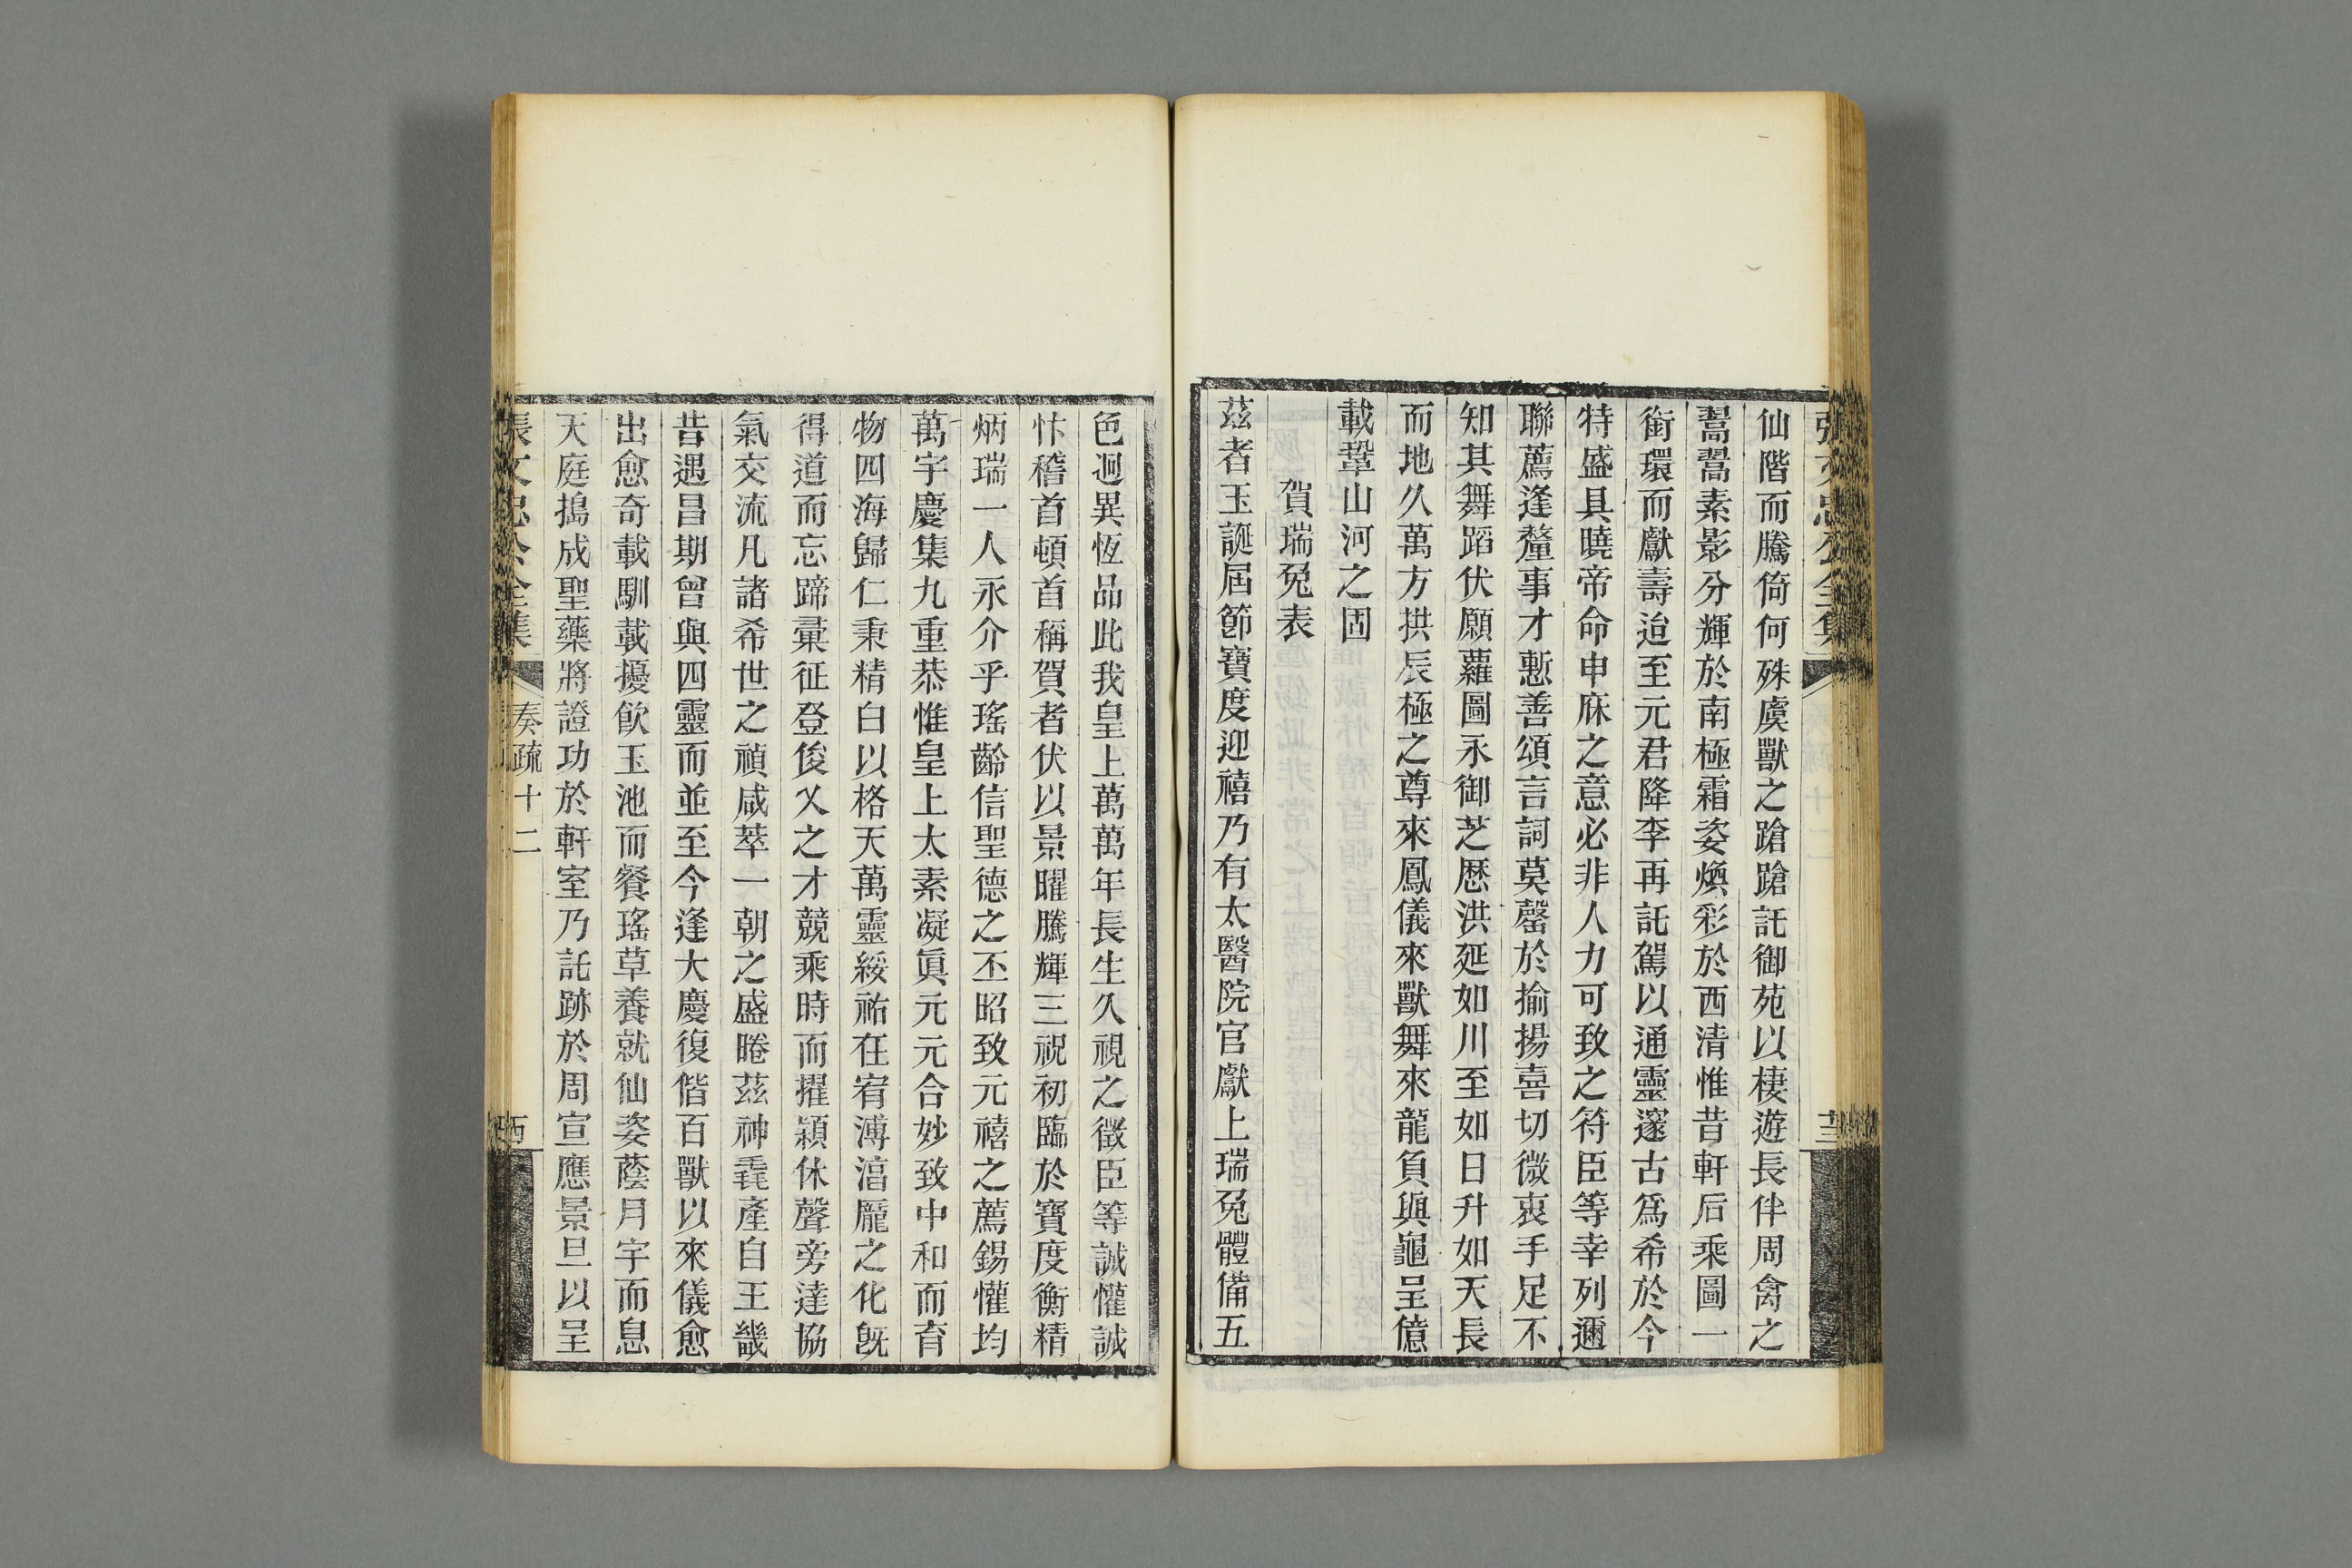 張文忠公全集
仙階而騰倚何殊虞獸之蹌蹌託御苑以棲遊長伴周禽之
翯翯素影分輝於南極霜姿煥彩於西清惟昔軒后乘圖一
銜環而獻壽迨至元君降李再託駕以通靈邃古爲希於今
特盛具曉帝命申庥之意必非人力可致之符臣等幸列邇
聯薦逢釐事才慙善頌言詞莫罄於揄揚喜切微衷手足不
知其舞蹈伏願蘿圖永御芝厯洪延如川至如日升如天長
而地久萬方拱辰極之尊來鳳儀來獸舞來龍負與龜呈億
載鞏山河之固
賀瑞兔表
茲者玉誕屆節寶度迎禧乃有太醫院官獻上瑞兔體備五
色迥異恆品此我皇上萬萬年長生久視之徵臣等誠懽誠
忭稽首頓首稱賀者伏以景曜騰輝三祝初臨於寶度衡精
炳瑞一人永介乎瑤齡信聖德之丕昭致元禧之薦錫懽均
萬宇慶集九重恭惟皇上太素凝眞元元合妙致中和而育
物四海歸仁秉精白以格天萬靈綏祐在宥溥濇厖之化旣
得道而忘蹄彙征登俊乂之才競乘時而擢穎休聲旁達協
氣交流凡諸希世之禎咸萃一朝之盛睠茲神毳產自王畿
昔遇昌期曾與四靈而並至今逢大慶復偕百獸以來儀愈
出愈奇載馴載擾飲玉池而餐瑤草養就仙姿蔭月宇而息
天庭搗成聖藥將證功於軒室乃託跡於周宣應景旦以呈
張文忠公全集 奏疏十二